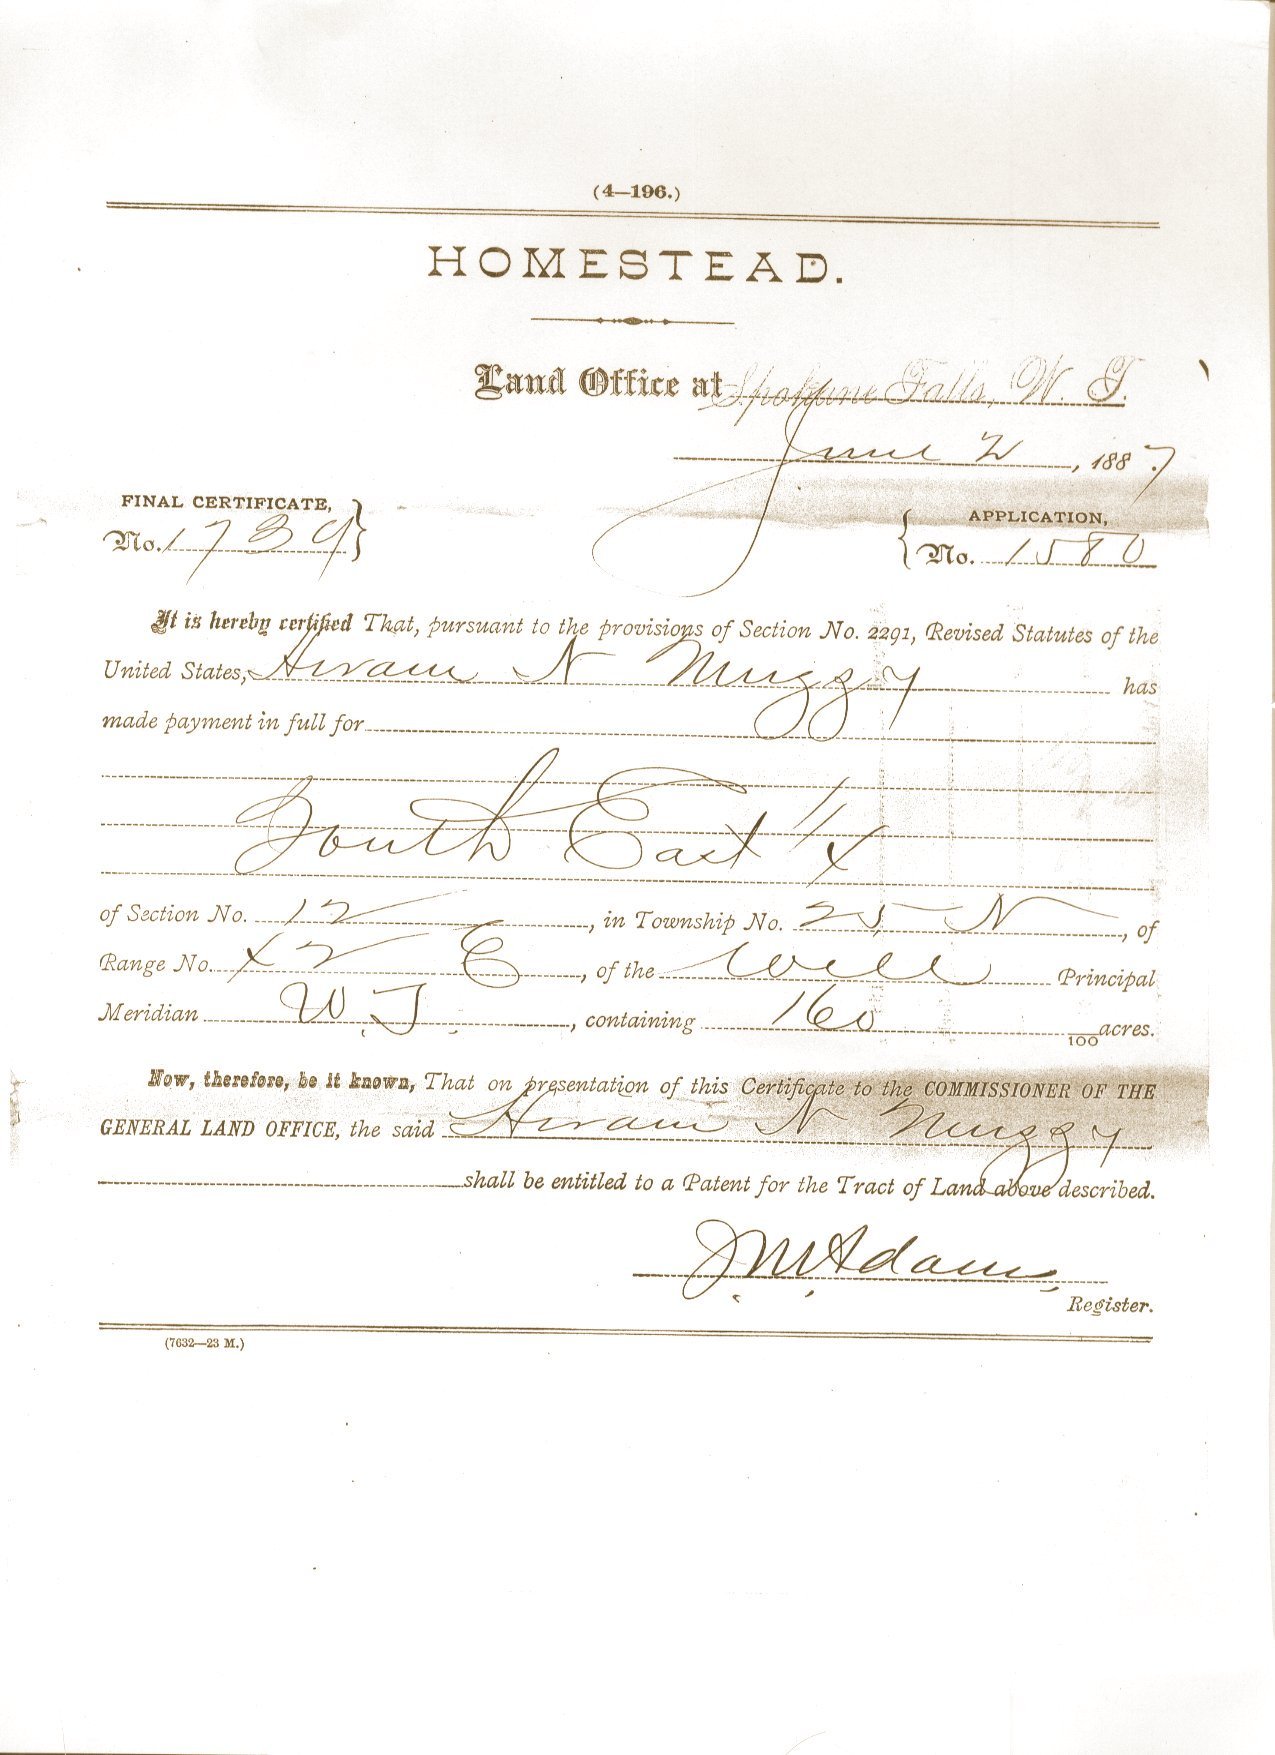 (4—196.)
HOMESTEAD.
Land Office at Spokane Falls, W. T.
June 2, 1887.
FINAL CERTIFICATE,
No. 1739
APPLICATION,
No. 1580
It is hereby certified That, pursuant to the provisions of Section No. 2291, Revised Statutes of the
United States, Hiram N Muggy has
made payment in full for
South East 1/4
of Section No. 12, in Township No. 25 N, of
Range No. 42 E, of the Will Principal
Meridian W. T., containing 160 /100 acres.
Now, therefore, be it known, That on presentation of this Certificate to the COMMISSIONER OF THE
GENERAL LAND OFFICE, the said Hiram N Muggy
shall be entitled to a Patent for the Tract of Land above described.
J. M. Adams,
Register.
(7632—23 M.)